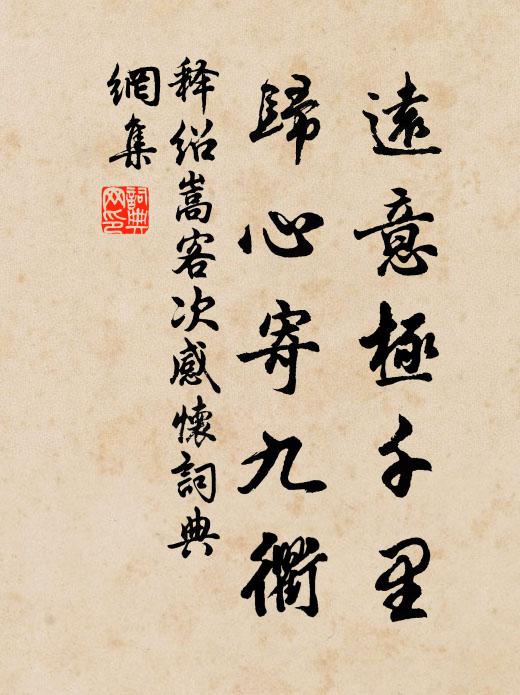 遠意極千里
歸心寄九衢
释绍嵩客次感懷詞典
網集
詞典網印